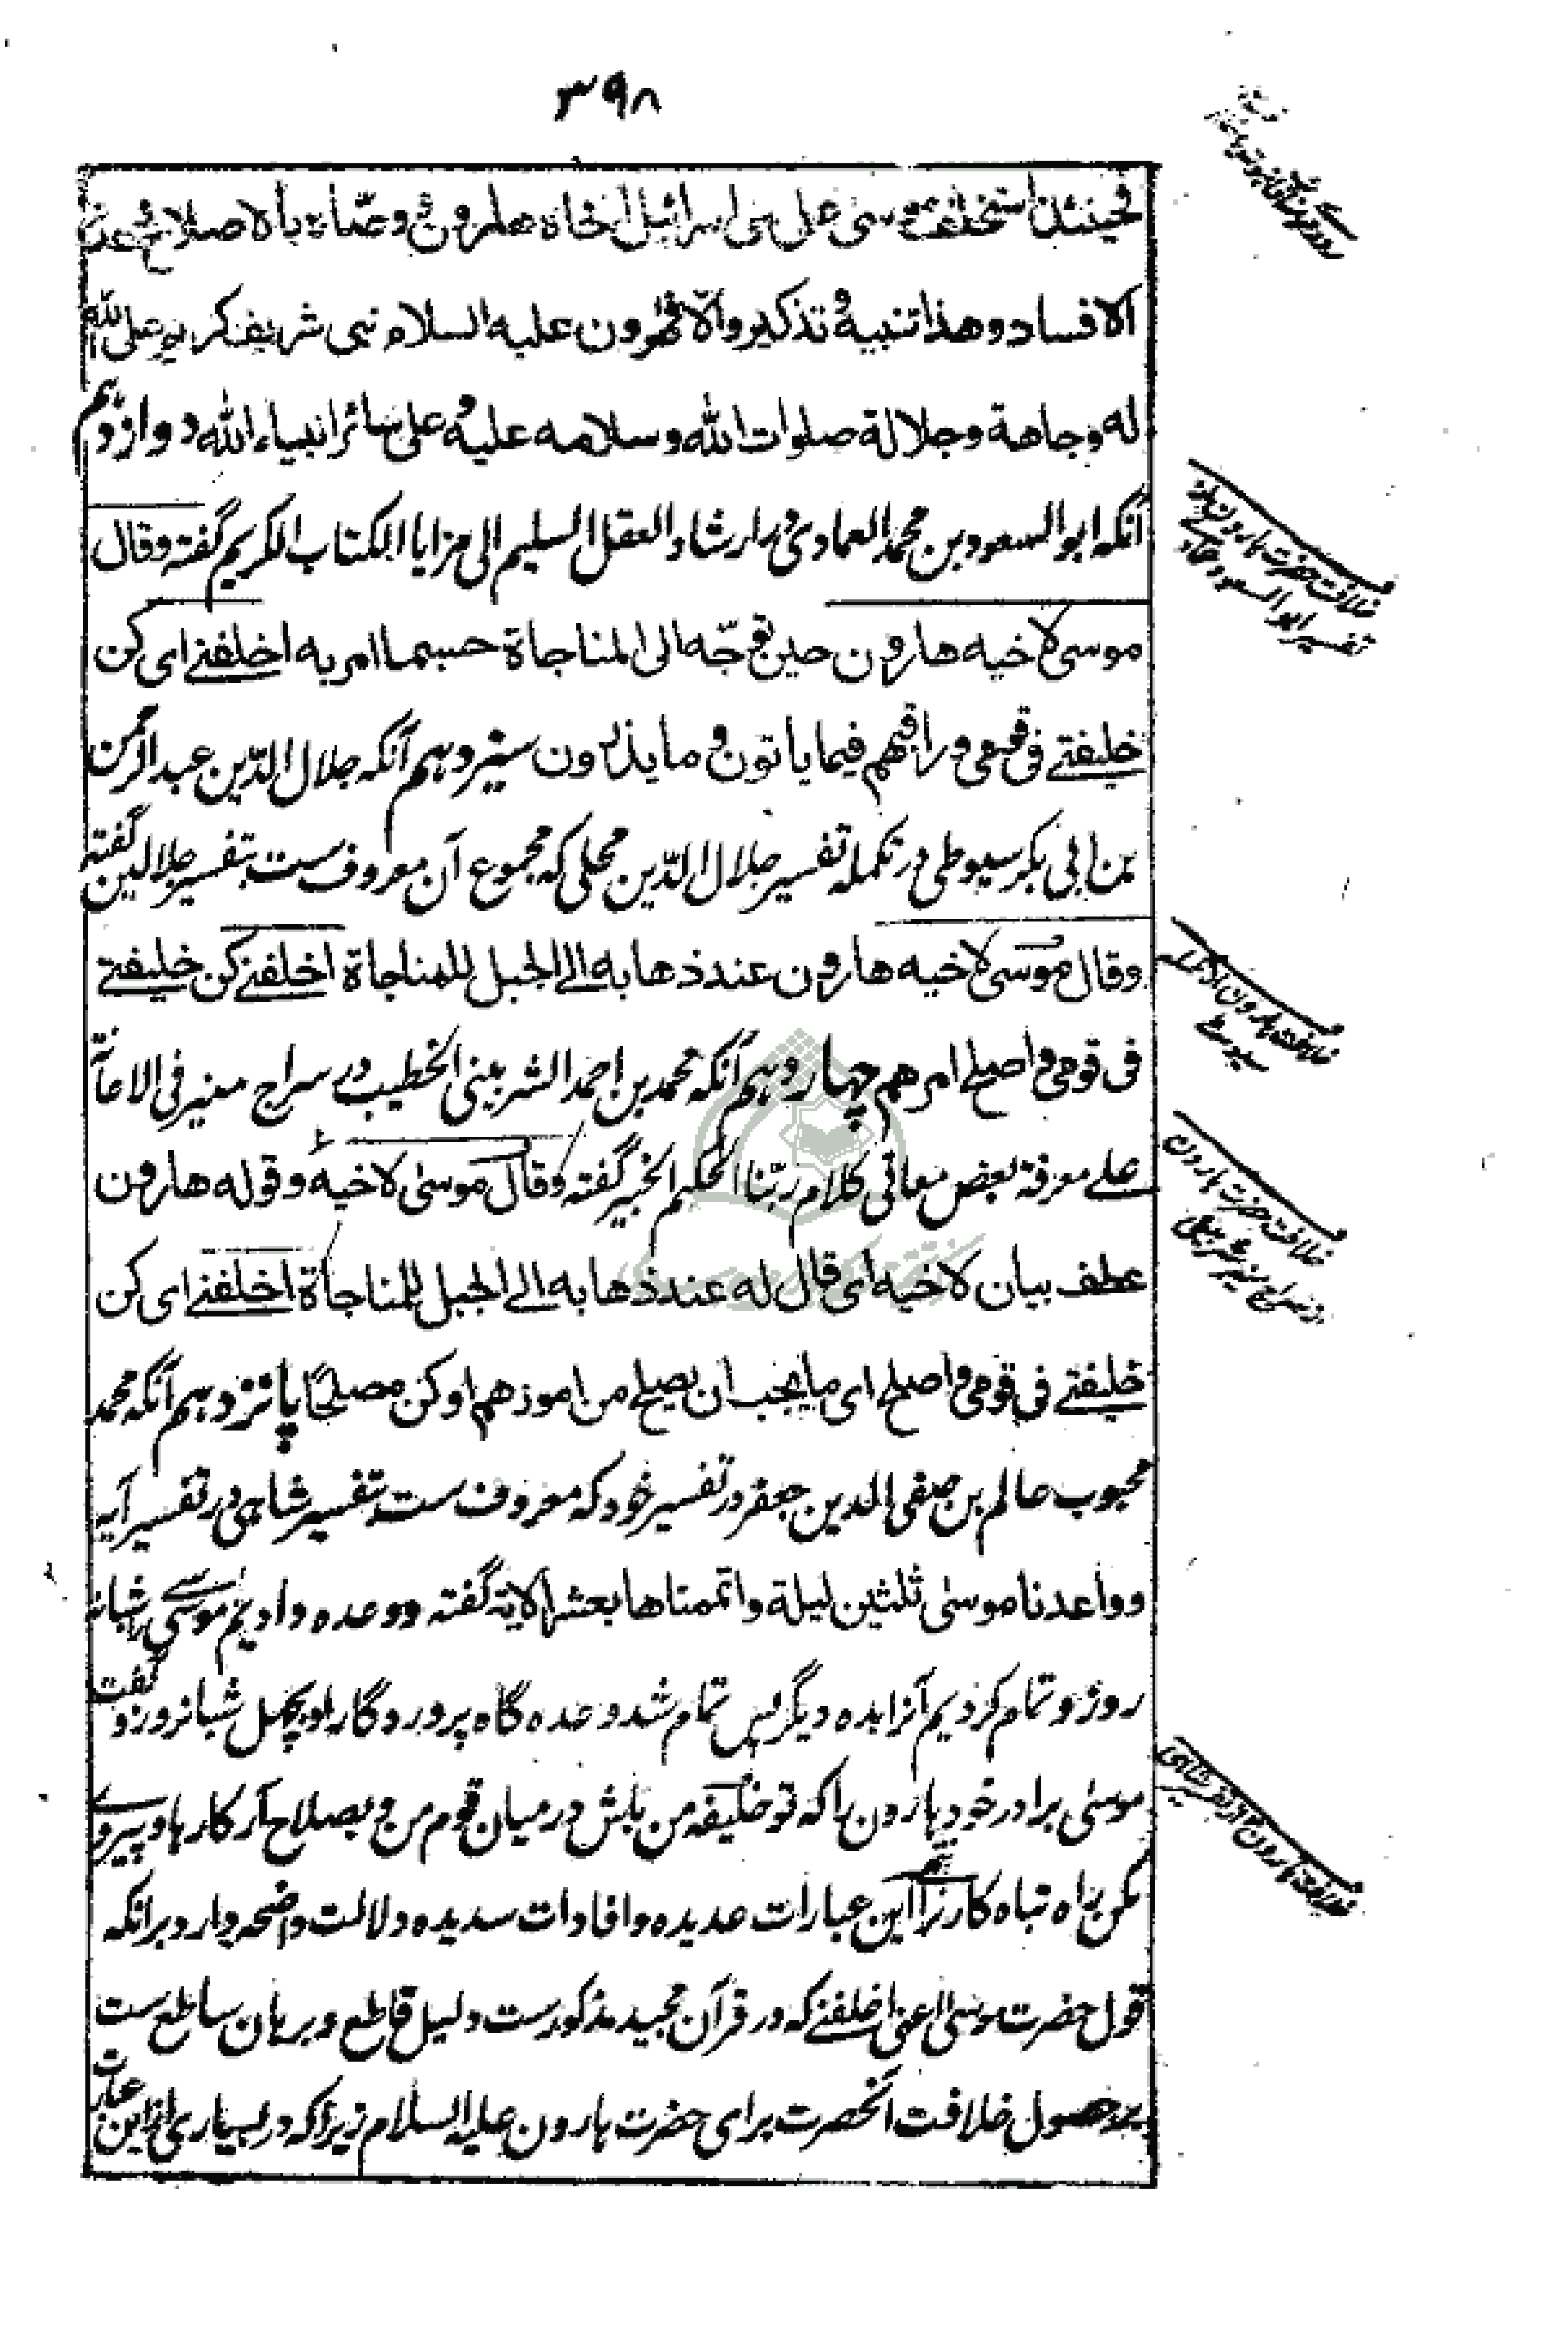 ۳۹۸
فحينئذ استخلف موسى على بنى اسرائيل اخاه هارون و وصّاه بالاصلاح و عدم
الافساد و هذا تنبيه و تذكير و الّا فهرون عليه السلام نبى شريف كريم على الله
له وجاهة و جلالة صلوات الله و سلامه عليه و على سائر انبياء الله دوازدهم
آنکه ابو السعود بن محمد العمادی در ارشاد العقل السليم الى مزايا الكتاب الكريم گفته و قال
موسى لاخيه هارون حين توجّه الى المناجاة حسبما امر به اخلفنے اى كن
خليفتے فى قومى و راقبهم فيما ياتون و ما يذرون سیزدہم آنکه جلال الدّین عبد الرحمن
بن ابی بکر سیوطی در تکمله تفسیر جلال الدّین محلی که مجموع آن معروف ست بتفسیر جلالین گفته
و قال موسى لاخيه هارون عند ذهابه الى الجبل للمناجاة اخلفنے كن خليفتے
فى قومى و اصلح امرهم چہاردہم آنکه محمد بن احمد الشربینی الخطیب در سراج منیر فی الاعانة
علے معرفة بعض معانى كلام ربّنا الحكيم الخبير گفته و قال موسىٰ لاخيه و قوله هارون
عطف بيان لاخيه اى قال له عند ذهابه الى الجبل للمناجاة اخلفنے اى كن
خليفتے فى قومى و اصلح اى ما يجب ان يصلح من امورهم او كن مصلحًا پانزدہم آنکه محمد
محبوب عالم بن صفی الدین جعفر در تفسیر خود که معروف ست بتفسیر شاہی در تفسیر آیه
و واعدنا موسىٰ ثلثين ليلة و اتممناها بعشر الاية گفته و وعده دادیم موسے را سی شبانه
روز و تمام کردیم آنرا بده دیگر پس تمام شد وعده گاه پروردگار او بچهل شبانروز و گفت
موسیٰ برادر خود ہارون را که تو خلیفه من باش در میان قوم من و بصلاح آر کارہا و پیروے
مکن براه تباه کاران را این عبارات عدیده و افادات سدیده دلالت واضحه دارد برانکه
قول حضرت موسیٰ اعنی اخلفنے که در قرآن مجید مذکورست دلیل قاطع و برہان ساطع ست
بر حصول خلافت آنحضرت برای حضرت ہارون علیه السلام زیرا که در بسیاری ازین عبارات
خلافت حضرت ہارون از
تفسیر ابو السعود عمادی
خلافت ہارون از تکمله
سیوطے
خلافت حضرت ہارون
از سراج منیر شربینی
خلافت ہارون از تفسیر شاہی